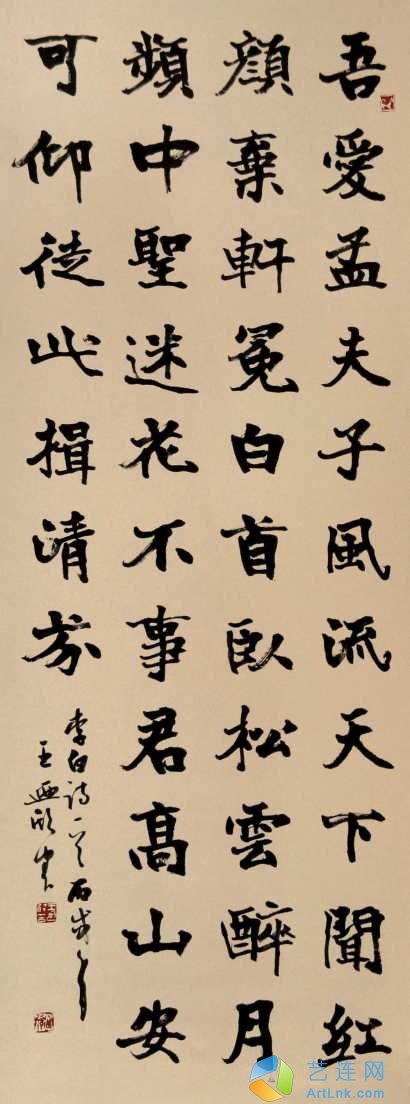 吾愛孟夫子風流天下聞紅
顔棄軒冕白首臥松雲醉月
頻中聖迷花不事君高山安
可仰徒此揖清芬
李白詩一首丙戌年
王
艺连网
ArtLnk.com